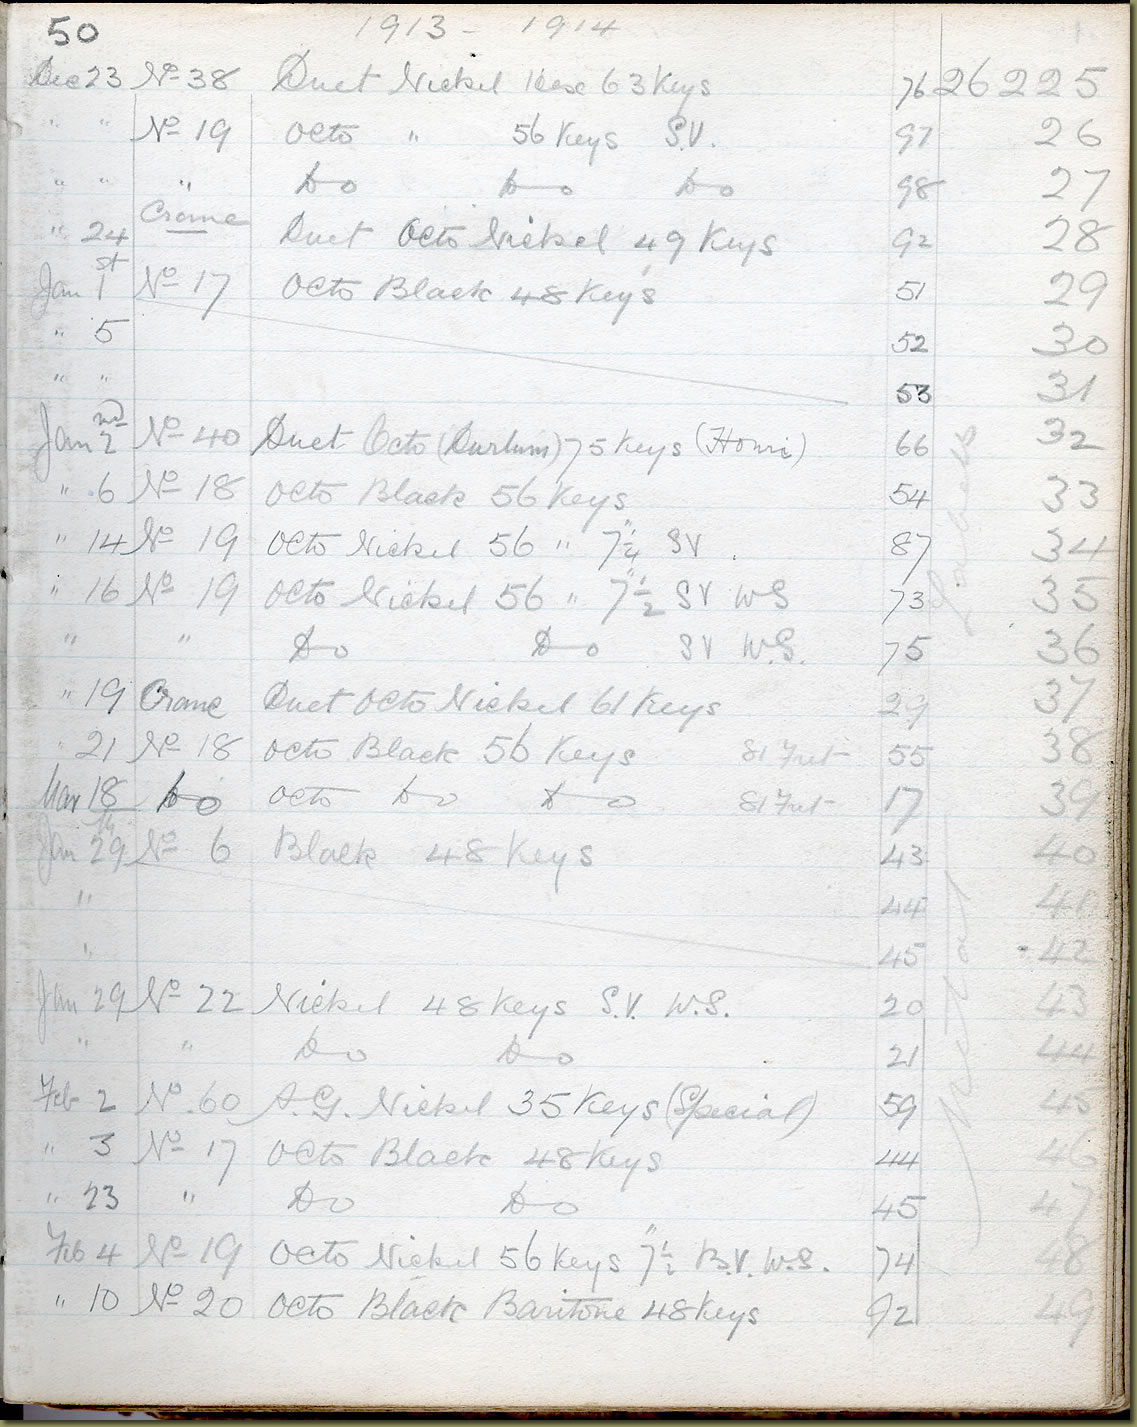 50 1913 - 1914
Dec 23 No 38 Duet Nickel Hex 63 Keys 76 26225
" " No 19 Octo " 56 Keys S.V. 97 26
" " " Do Do Do 98 27
" 24 Crane Duet Octo Nickel 49 Keys 92 28
Jan 1st No 17 Octo Black 48 Keys 51 29
" 5 52 30
" " 53 31
Jan 2nd No 40 Duet Octo 75 Keys 66 32
" 6 No 18 Octo Black 56 Keys 54 33
" 14 No 19 Octo Nickel 56 " 7¼" SV. 87 34
" 16 No 19 Octo Nickel 56 " 7½" SV WS 73 35
" " Do Do SV W.S. 75 36
" 19 Crane Duet Octo Nickel 61 Keys 29 37
" 21 No 18 Octo Black 56 Keys 55 38
Mar 18 Do Octo Do Do 17 39
Jan 29th No 6 Black 48 Keys 43 40
" 44 41
" 45 42
Jan 29 No 22 Nickel 48 Keys S.V. W.S. 20 43
" " Do Do 21 44
Feb 2 No. 60 A.G. Nickel 35 Keys (Special) 59 45
" 3 No 17 Octo Black 48 Keys 44 46
" 23 " Do Do 45 47
Feb 4 No 19 Octo Nickel 56 Keys 7½" B.V. W.S. 74 48
" 10 No 20 Octo Black Baritone 48 Keys 92 49